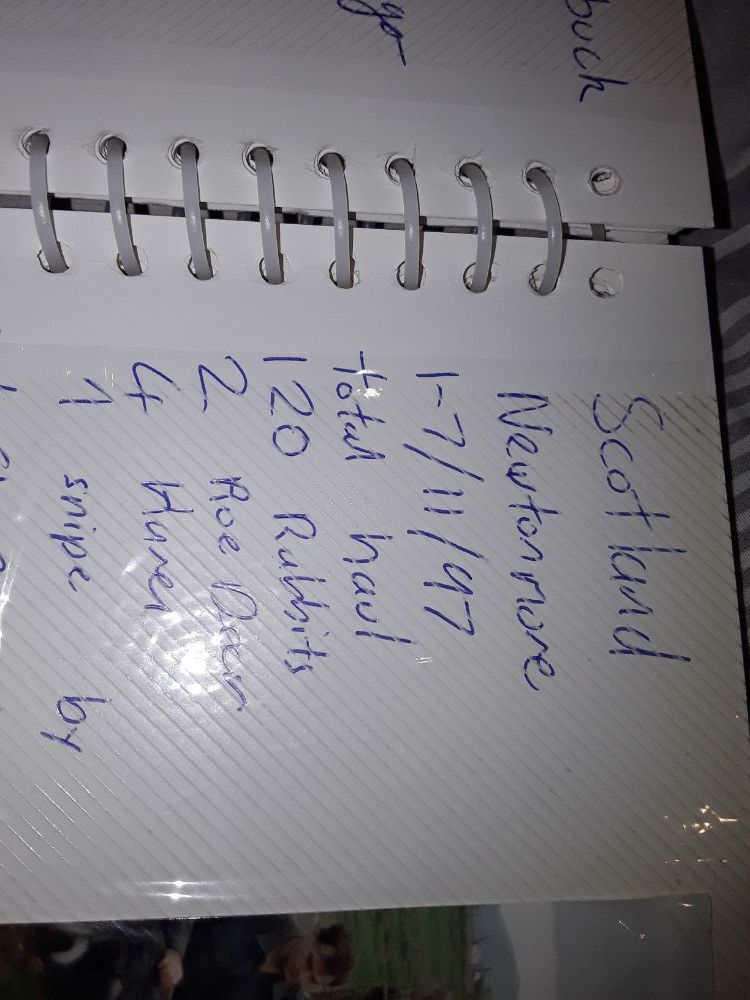 buck
go
Scotland
Newtonmore
1-7/11/97
total haul
120 Rabbits
2 Roe Deer
4 Hares
1 snipe by